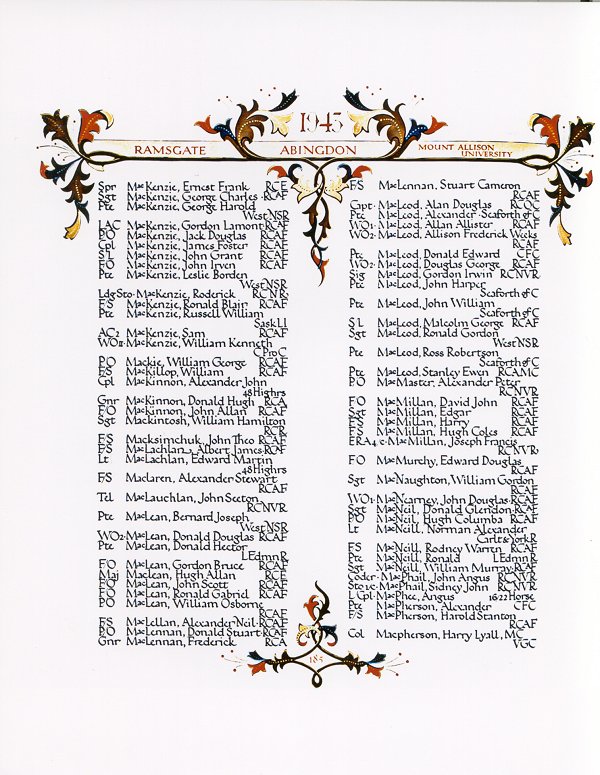 1943
RAMSGATE ABINGDON MOUNT ALLISON UNIVERSITY
Spr MacKenzie, Ernest Frank RCE
Sgt MacKenzie, George Charles · RCAF
Pte MacKenzie, George Harold
West NSR
LAC MacKenzie, Gordon Lamont RCAF
PO MacKenzie, Jack Douglas RCAF
Cpl MacKenzie, James Foster RCAF
SL MacKenzie, John Grant RCAF
FO MacKenzie, John Irven RCAF
Pte MacKenzie, Leslie Borden
West NSR
Ldg Sto · MacKenzie, Roderick RCNR
FS MacKenzie, Ronald Blair RCAF
Pte MacKenzie, Russell William
Sask LI
AC2 MacKenzie, Sam RCAF
WO11 · MacKenzie, William Kenneth
C Pro C
PO Mackie, William George RCAF
FS MacKillop, William RCAF
Cpl MacKinnon, Alexander John
48 Highrs
Gnr MacKinnon, Donald Hugh RCA
FO MacKinnon, John Allan RCAF
Sgt Mackintosh, William Hamilton
RCR
FS Macksimchuk, John Theo RCAF
FS MacLachlan, Albert James · RCAF
Lt MacLachlan, Edward Martin
48 Highrs
FS Maclaren, Alexander Stewart
RCAF
Tel MacLauchlan, John Seeton
RCNVR
Pte MacLean, Bernard Joseph
West NSR
WO2 · MacLean, Donald Douglas RCAF
Pte MacLean, Donald Hector
L Edmn R
FO MacLean, Gordon Bruce RCAF
Maj Maclean, Hugh Allan RCE
FO MacLean, John Scott RCAF
FO MacLean, Ronald Gabriel RCAF
PO MacLean, William Osborne
RCAF
FS MacLellan, Alexander Neil · RCAF
PO MacLennan, Donald Stuart · RCAF
Gnr MacLennan, Frederick RCA
FS MacLennan, Stuart Cameron
RCAF
Capt · MacLeod, Alan Douglas RCOC
Pte MacLeod, Alexander · Seaforth of C
WO1 · MacLeod, Allan Allister RCAF
WO2 · MacLeod, Allison Frederick Weeks
RCAF
Pte MacLeod, Donald Edward CFC
WO2 · MacLeod, Douglas George RCAF
Sig MacLeod, Gordon Irwin RCNVR
Pte MacLeod, John Harper
Seaforth of C
Pte MacLeod, John William
Seaforth of C
SL MacLeod, Malcolm George RCAF
Sgt MacLeod, Ronald Gordon
West NSR
Pte MacLeod, Ross Robertson
Seaforth of C
Pte MacLeod, Stanley Ewen RCAMC
PO MacMaster, Alexander Peter
RCNVR
FO MacMillan, David John RCAF
Sgt MacMillan, Edgar RCAF
FS MacMillan, Harry RCAF
FS MacMillan, Hugh Coles RCAF
ERA4c · MacMillan, Joseph Francis
RCNVR
FO MacMurchy, Edward Douglas
RCAF
Sgt MacNaughton, William Gordon
RCAF
WO1 · MacNearney, John Douglas · RCAF
Sgt MacNeil, Donald Glendon · RCAF
PO MacNeil, Hugh Columba RCAF
Lt MacNeill, Norman Alexander
Carlt & York R
FS MacNeill, Rodney Warren RCAF
Pte MacNeill, Ronald L Edmn R
Sgt MacNeill, William Murray · RCAF
Coder · MacPhail, John Angus RCNVR
Sto1c · MacPhail, Sidney John RCNVR
L Cpl · MacPhee, Angus 16 22 Horse
Pte MacPherson, Alexander CFC
FS MacPherson, Harold Stanton
RCAF
Col Macpherson, Harry Lyall, MC
VGC
185